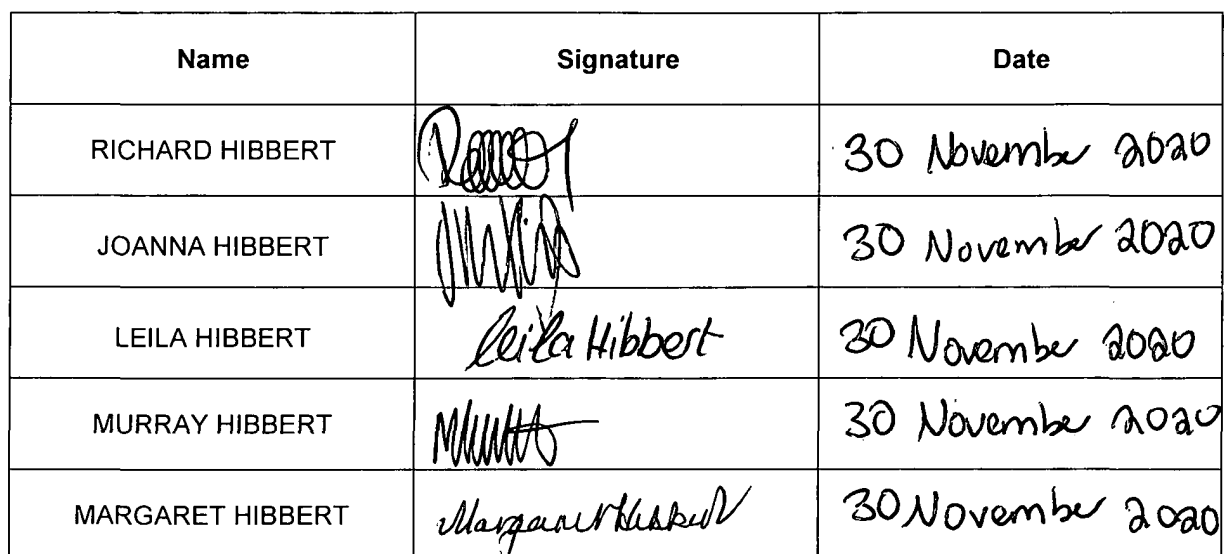 Name Signature Date
RICHARD HIBBERT 30 November 2020
JOANNA HIBBERT 30 November 2020
LEILA HIBBERT Leila Hibbert 30 November 2020
MURRAY HIBBERT 30 November 2020
MARGARET HIBBERT Margaret Hibbert 30 November 2020